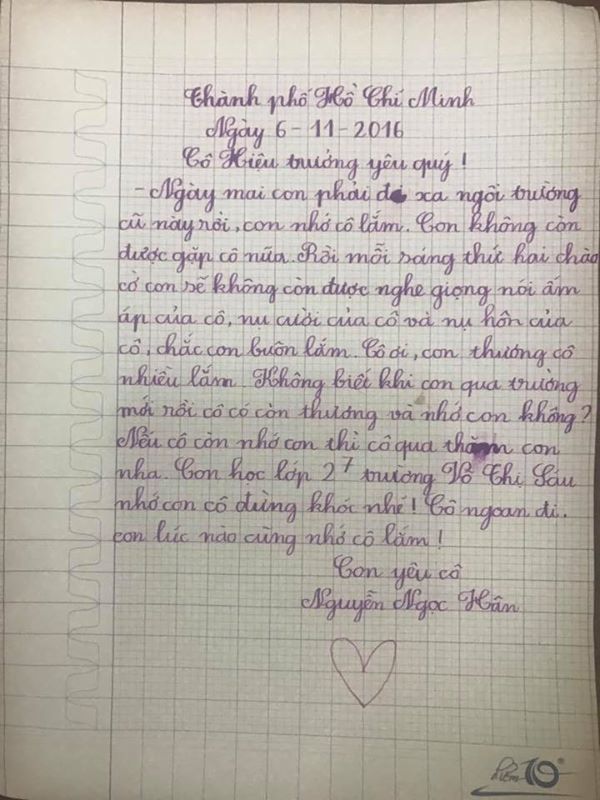 Thành phố Hồ Chí Minh
Ngày 6-11-2016
Cô Hiệu trưởng yêu quý!
- Ngày mai con phải đi xa ngôi trường
cũ này rồi, con nhớ cô lắm. Con không còn
được gặp cô nữa. Rồi mỗi sáng thứ hai chào
cờ con sẽ không còn được nghe giọng nói ấm
áp của cô, nụ cười của cô và nụ hôn của
cô, chắc con buồn lắm. Cô ơi, con thương cô
nhiều lắm. Không biết khi con qua trường
mới rồi cô có còn thương và nhớ con không?
Nếu cô còn nhớ con thì cô qua thăm con
nha. Con học lớp 2⁷ trường Võ Thị Sáu
nhớ con cô đừng khóc nhé! Cô ngoan đi.
con lúc nào cũng nhớ cô lắm!
Con yêu cô
Nguyễn Ngọc Hân
điểm 10